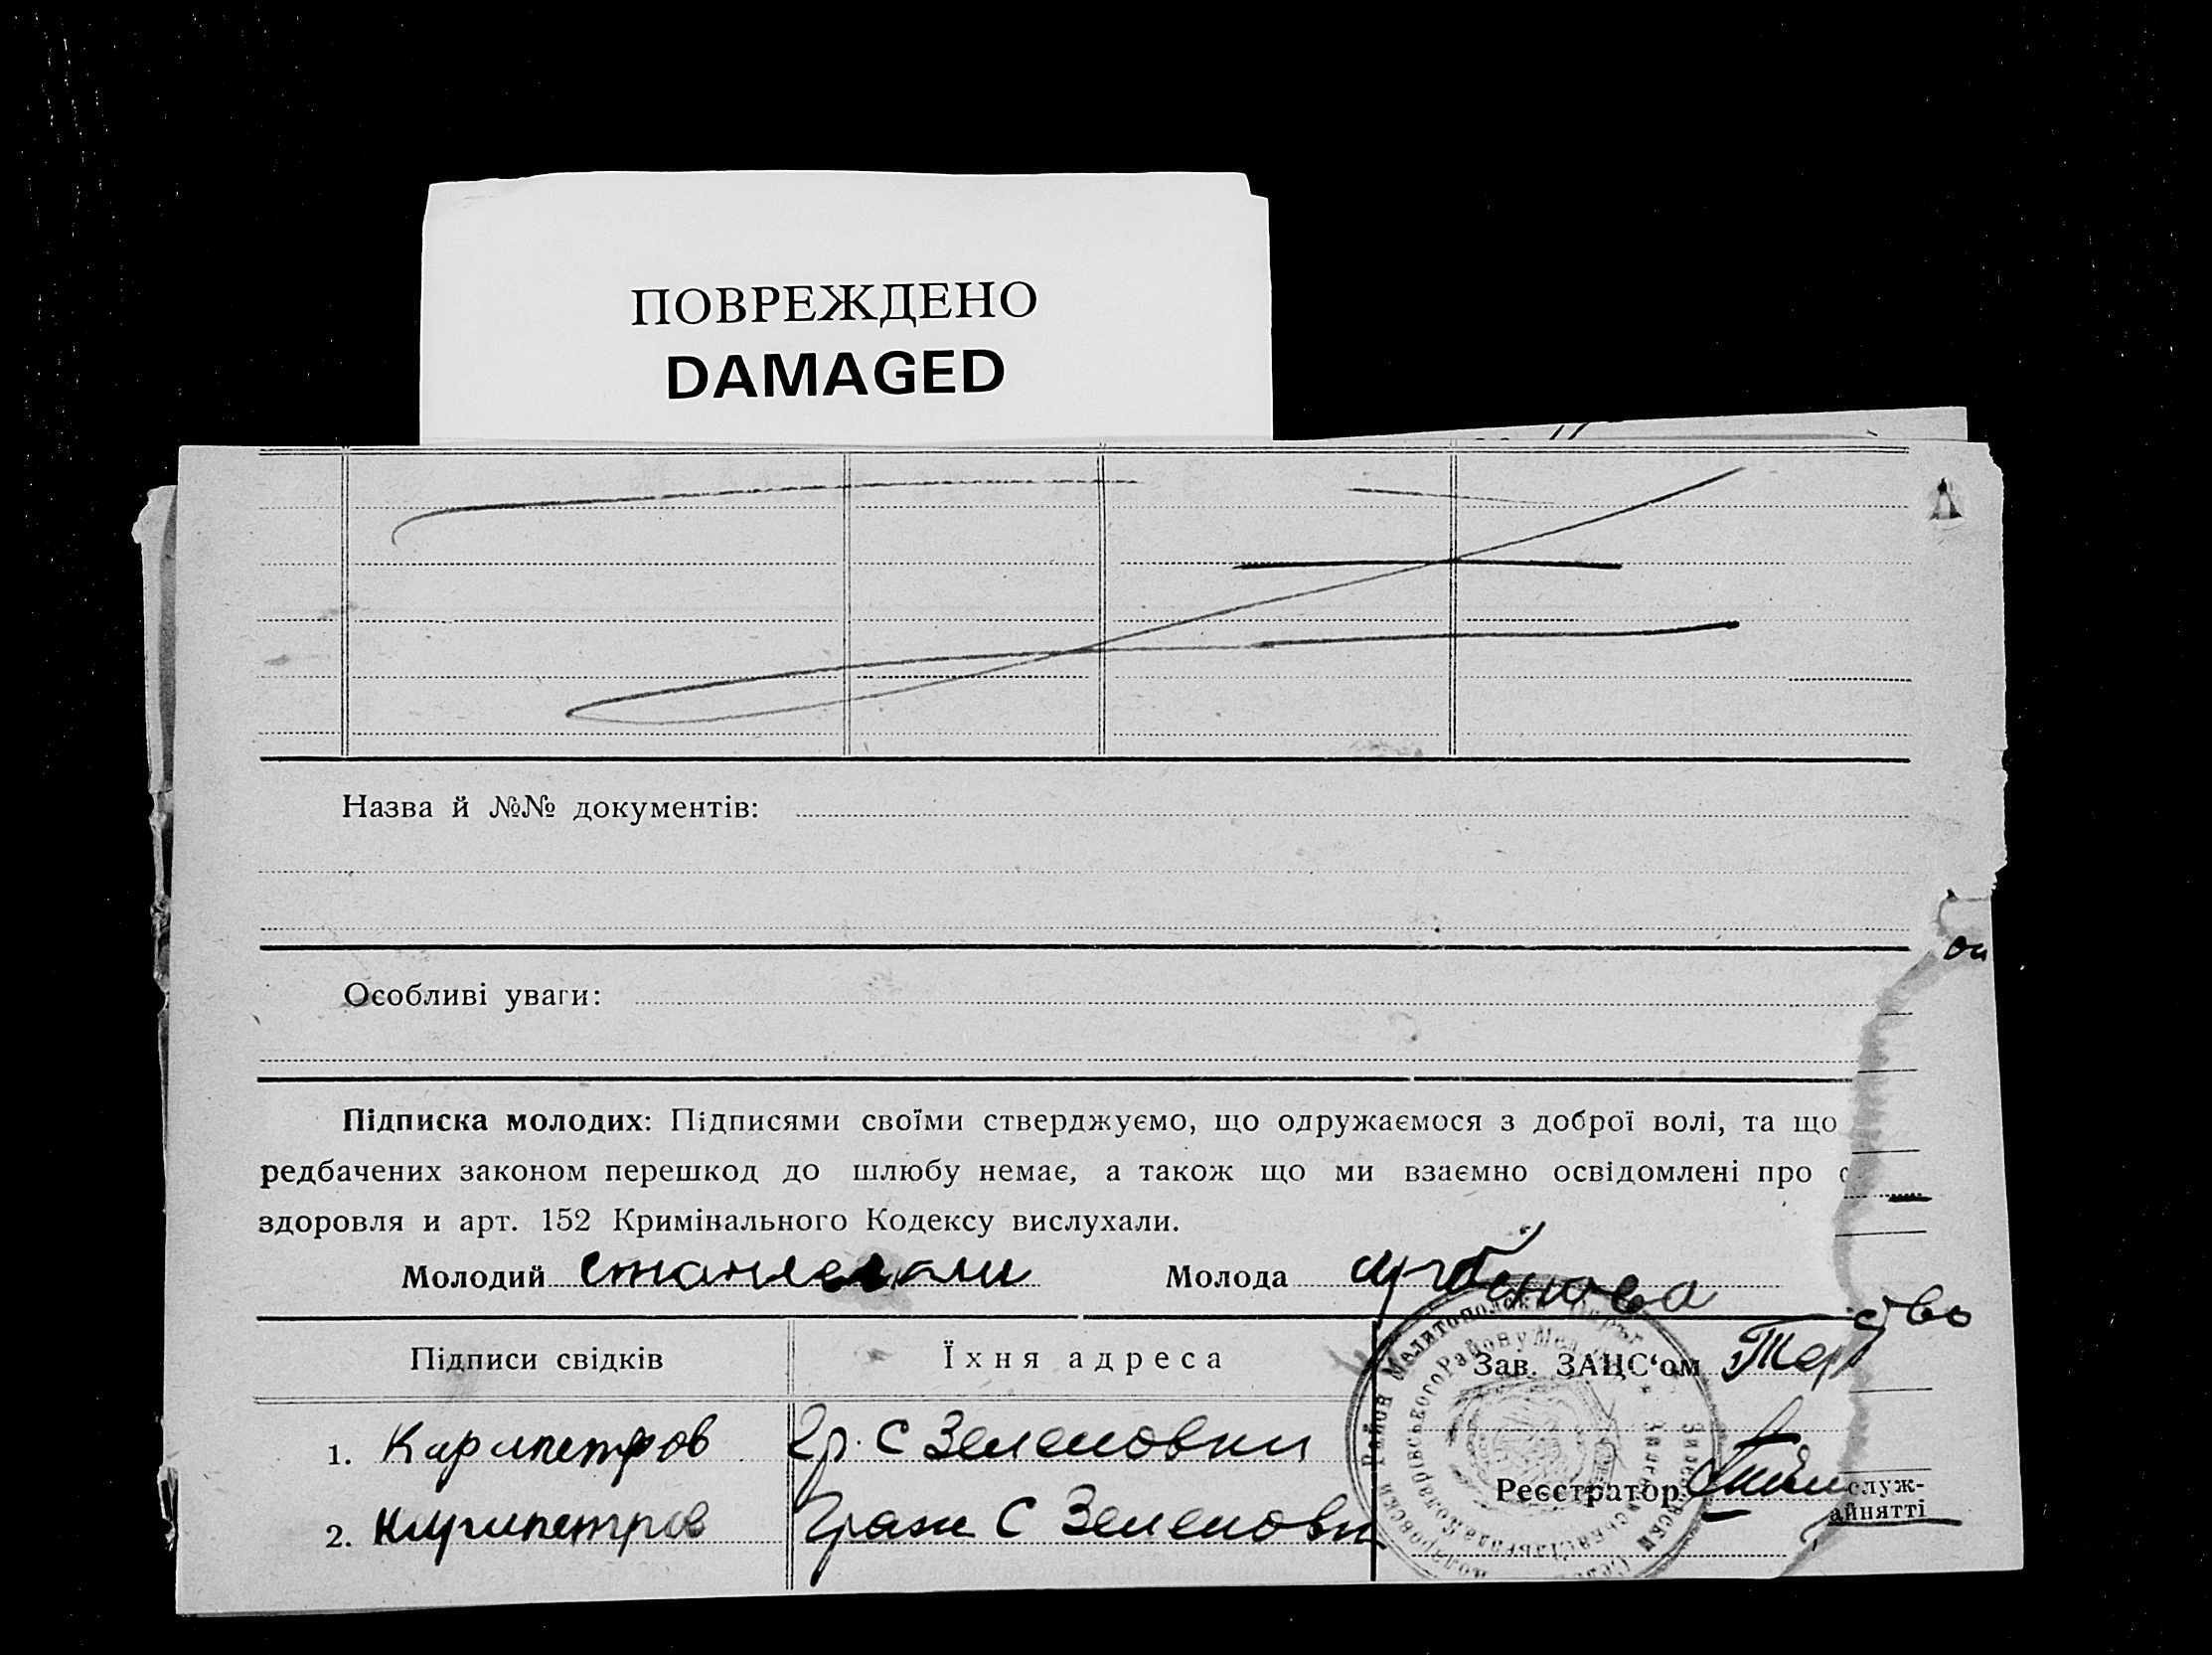 ПОВРЕЖДЕНО
DAMAGED
Назва й №№ документів:
Особливі уваги:
Підписка молодих: Підписями своїми стверджуємо, що одружаємося з доброї волі, та що
редбачених законом перешкод до шлюбу немає, а також що ми взаємно освідомлені про с
здоровля и арт. 152 Кримінального Кодексу вислухали.
Молодий Молода
ство
Підписи свідків Їхня адреса Зав. ЗАЦС‘ом
1. Карипетров Гр. С Зеленовки
Реєстратор
служ-
айнятті
2. Карипетров Граж С Зеленовки